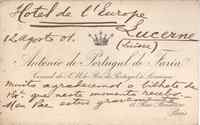 Hotel de l'Europe
Lucerne
(Suisse)
12 agosto 01.
Antonio de Portugal de Faria
Consul de S. M. le Roi de Portugal à
Muito agradecemos o bilhete de
que neste momento recebo.
Meu Pae estar gravemente
Paris